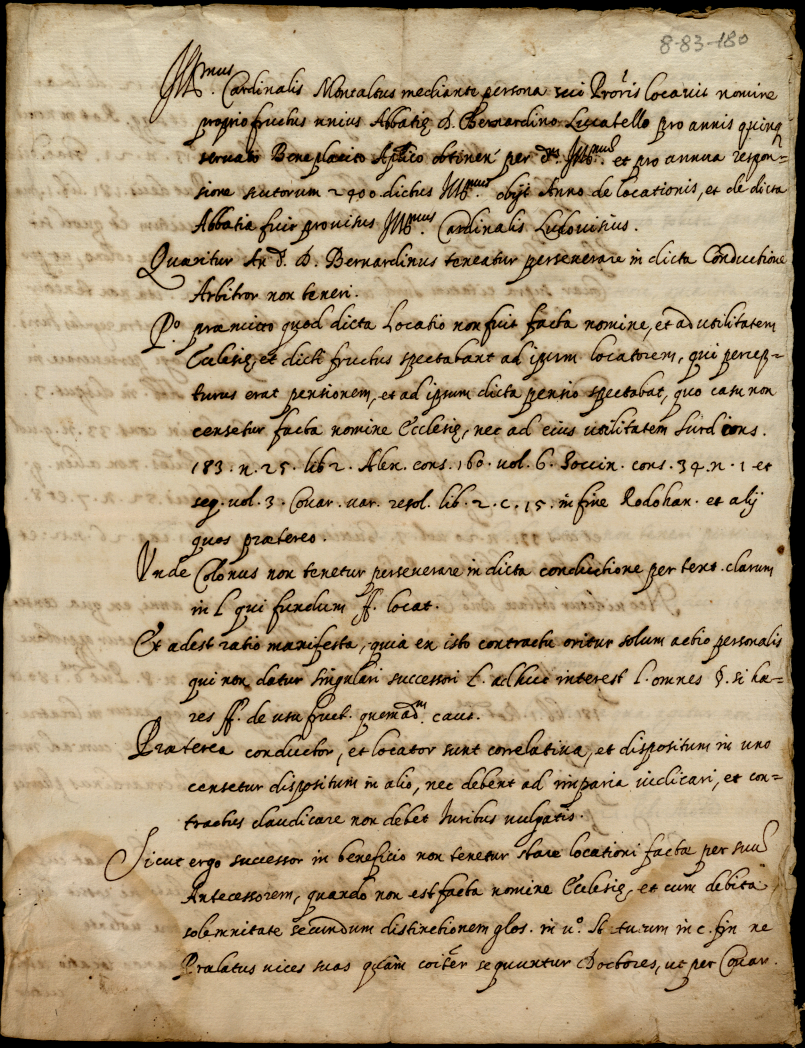 8-83-180
Ill.mus Cardinalis Montaltus mediante persona sui Proris locavit nomine
proprio fructus unius Abbatię D. Bernardino Lucatello pro annis quinq
servato Beneplacito Aplico obtinen per d. Ill.mus et pro annua respon=
sione scutorum 2400 dictus Ill.mus obijt Anno de locationis, et de dicta
Abbatia fuit provisus Ill.mus Cardinalis Ludovisius.
Quaeritur An d. D. Bernardinus teneatur perseverare in dicta Conductione
Arbitror non teneri.
P.o praemitto quod dicta Locatio non fuit facta nomine, et ad utilitatem
Ecclesię, et dicti fructus spectabant ad ipsum locatorem, qui percep=
turus erat pensionem, et ad ipsum dicta pensio spectabat, quo casu non
censetur facta nomine Ecclesię, nec ad eius utilitatem Surd cons.
183. n. 25. lib 2. Alex. cons. 160. vol. 6. Soccin. cons. 34. n. 1 et
seq. vol. 3. Covar. var. resol. lib. 2. c. 15. in fine Rodohan. et alij
quos praetereo.
Unde Colonus non tenetur perseverare in dicta conductione per text. clarum
in l. qui fundum ff. locat.
Et adest ratio manifesta, quia ex isto contractu oritur solum actio personalis
qui non datur singulari successori l. adhuc interest l. omnes §. si hae=
res ff. de usufruct. quemad.m cave.
Praeterea conductor, et locator sunt correlativa, et dispositum in uno
censetur dispositum in alio, nec debent ad imparia iudicari, et con=
tractus claudicare non debet Iuribus vulgatis.
Sicut ergo successor in beneficio non tenetur stare locationi factae per suu
Antecessorem, quando non est facta nomine Ecclesię, et cum debita
solemnitate secundum distinctionem glos. in v.o in c. fin ne
Praelatus vices suas quam coiter sequuntur Doctores, ut per Covar.